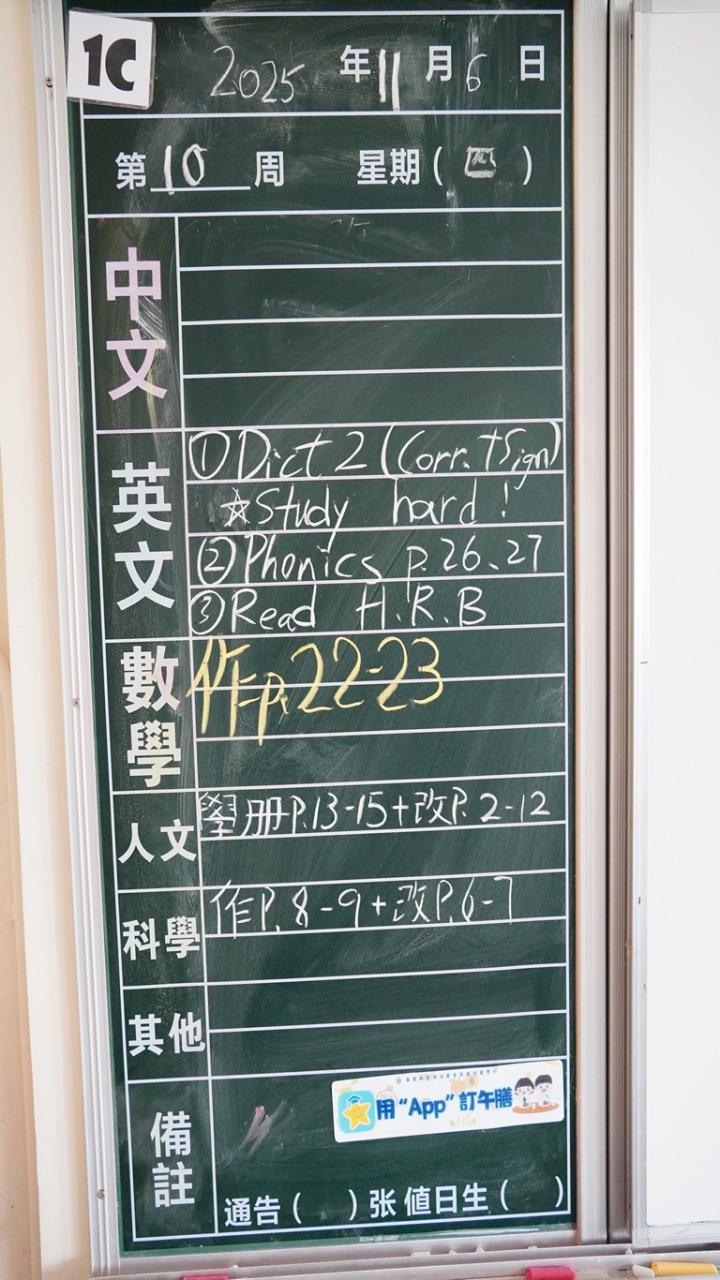 1C
2025 年 11 月 6 日
第 10 周 星期 ( 四 )
中文
英文
①Dict 2 (Corr. + Sign)
☆Study hard !
②Phonics p.26、27
③Read H.R.B
數學
作p.22-23
人文
學册P.13-15+改P.2-12
科學
作P.8-9+改P.6-7
其他
備註
用“App”訂午膳
通告 ( ) 张 值日生 ( )